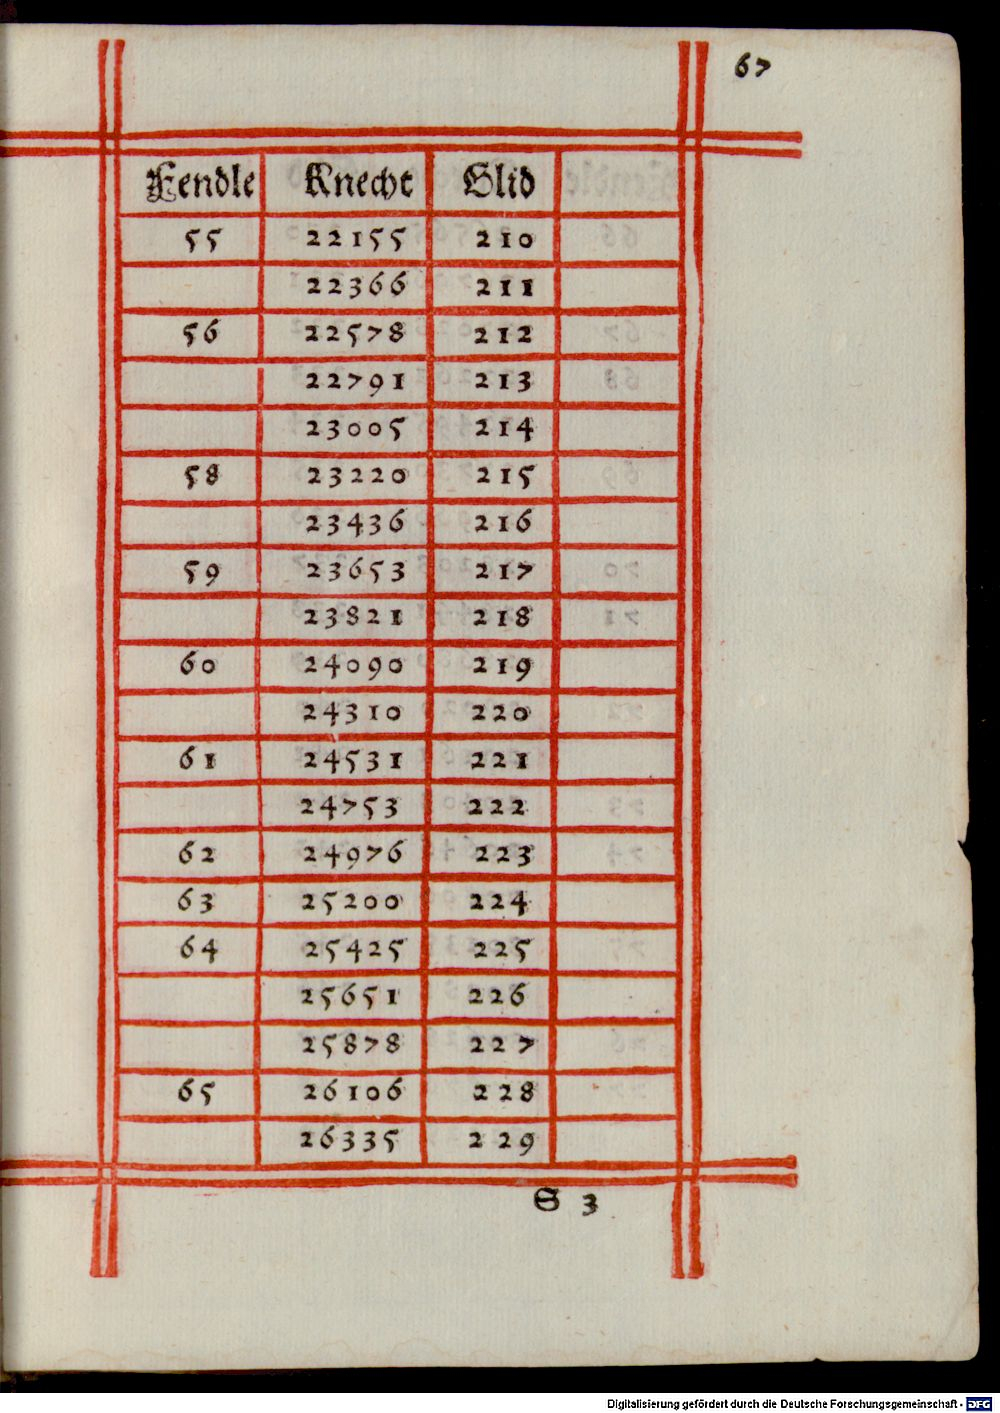 67
Fendle Knecht Glid
55 22155 210
22366 211
56 22578 212
22791 213
23005 214
58 23220 215
23436 216
59 23653 217
23821 218
60 24090 219
24310 220
61 24531 221
24753 222
62 24976 223
63 25200 224
64 25425 225
25651 226
25878 227
65 26106 228
26335 229
S 3
Digitalisierung gefördert durch die Deutsche Forschungsgemeinschaft - DFG